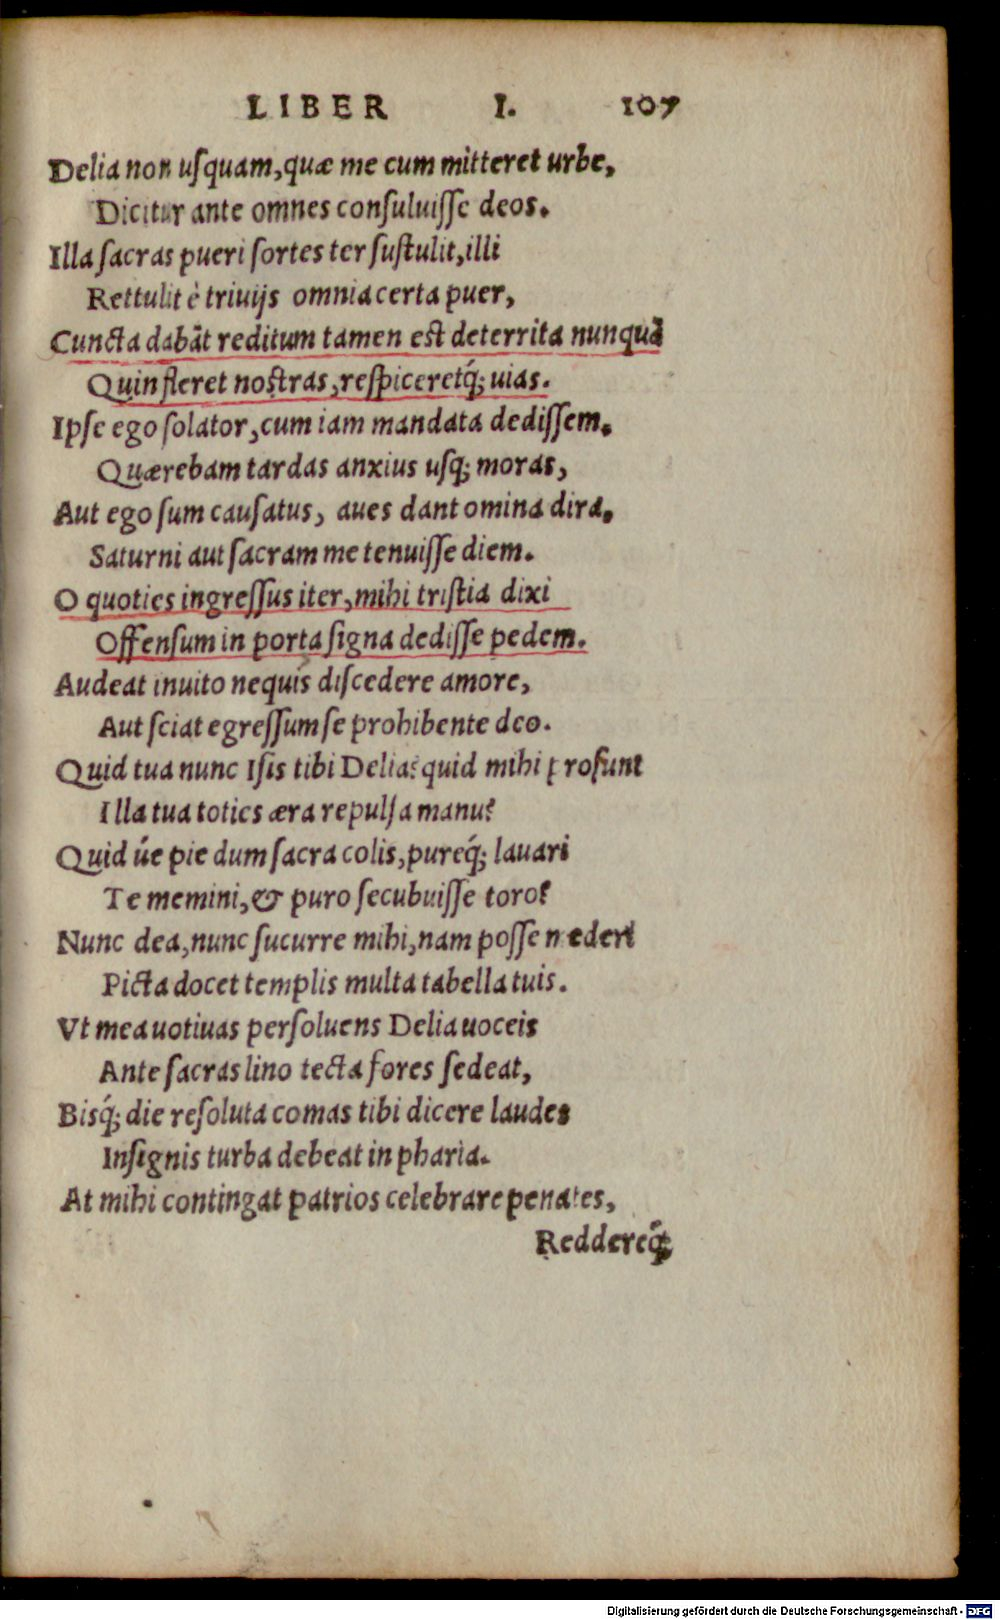 LIBER I. 107
Delia non uſquam, quæ me cum mitteret urbe,
Dicitur ante omnes conſuluiſſe deos.
Illa ſacras pueri ſortes ter ſuſtulit, illi
Rettulit è triuijs omnia certa puer,
Cuncta dabāt reditum tamen est deterrita nunquā
Quin fleret noſtras, reſpiceretq́; uias.
Ipſe ego ſolator, cum iam mandata dediſſem.
Quærebam tardas anxius uſq; moras,
Aut ego ſum cauſatus, aues dant omina dira.
Saturni aut ſacram me tenuiſſe diem.
O quoties ingreſſus iter, mihi triſtia dixi
Offenſum in porta ſigna dediſſe pedem.
Audeat inuito nequis diſcedere amore,
Aut ſciat egreſſum ſe prohibente deo.
Quid tua nunc Iſis tibi Delia? quid mihi proſunt
Illa tua toties æra repulſa manu?
Quid úe pie dum ſacra colis, pureq́; lauari
Te memini, & puro ſecubuiſſe toro?
Nunc dea, nunc ſucurre mihi, nam poſſe mederi
Picta docet templis multa tabella tuis.
Vt mea uotiuas perſoluens Delia uoceis
Ante ſacras lino tecta fores ſedeat,
Bisq́; die reſoluta comas tibi dicere laudes
Inſignis turba debeat in pharia.
At mihi contingat patrios celebrare penates,
Reddereq́;
Digitalisierung gefördert durch die Deutsche Forschungsgemeinschaft - DFG